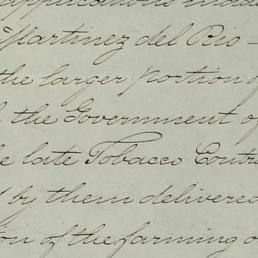 Martinez del Rio -
the larger portion
the Government of
late Tobacco Contr
by them delivered
of the farming o